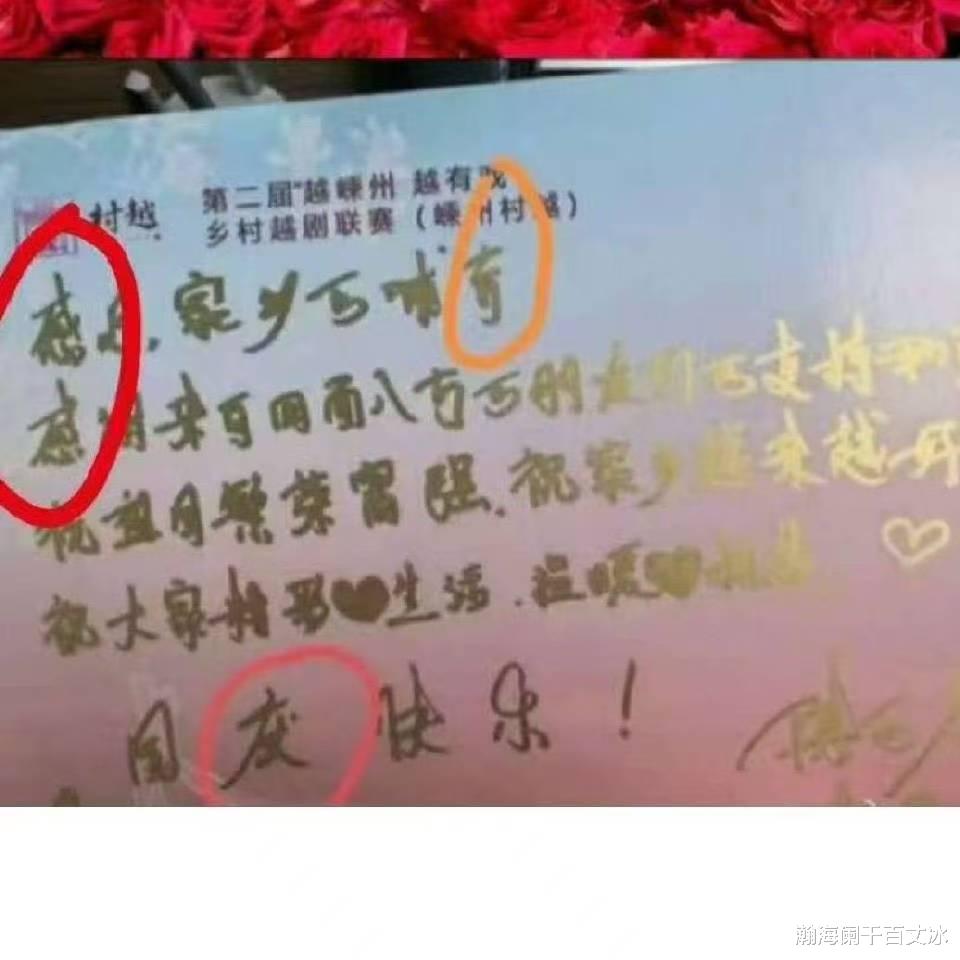 村越
第二届"越嵊州 越有戏
乡村越剧联赛（嵊州村越）
感恩家乡的哺育
感谢来自四面八方的朋友们的支持和
祝祖国繁荣富强.祝家乡越来越好
祝大家精彩生活.温暖相
国庆快乐！
瀚海阑干百丈冰